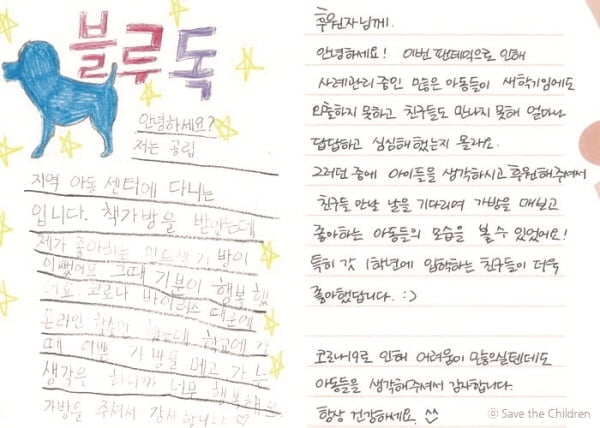 블루독
안녕하세요?
저는 공립
지역 아동 센터에 다니는
입니다. 책가방을 받았는데
제가 좋아하는 민트색 가방이
이뻤어요 그때 기분이 행복했
어요 코로나 바이러스 때문에
온라인 학습만 했는데 학교에 갈
때 이쁜 가방을 메고 가는
생각을 하니까 너무 행복해요
가방을 주셔서 감사합니다 ♡
후원자님께.
안녕하세요! 이번 팬데믹으로 인해
사례관리 중인 많은 아동들이 새학기임에도
외출하지 못하고 친구들도 만나지 못해 얼마나
답답하고 심심해했는지 몰라요.
그러던 중에 아이들을 생각하시고 후원해주셔서
친구들 만날 날을 기다리며 가방을 매보고
좋아하는 아동들의 모습을 볼 수 있었어요!
특히 갓 1학년에 입학하는 친구들이 더욱
좋아했답니다. :)
코로나19로 인해 어려움이 많으실텐데도
아동들을 생각해주셔서 감사합니다.
항상 건강하세요. ^^
© Save the Children